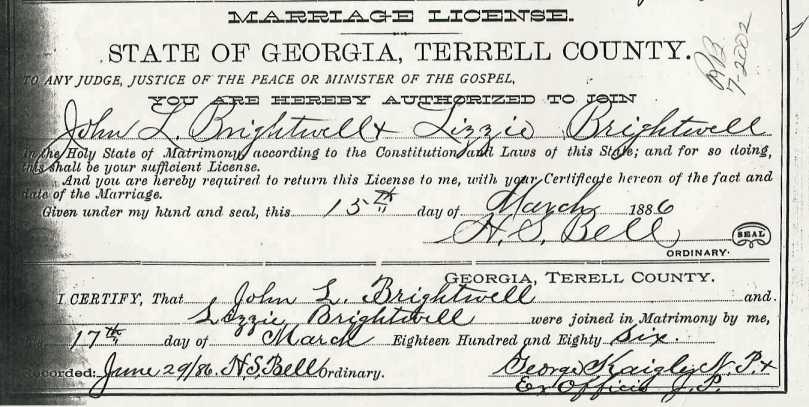 MARRIAGE LICENSE.
STATE OF GEORGIA, TERRELL COUNTY.
7-2002
TO ANY JUDGE, JUSTICE OF THE PEACE OR MINISTER OF THE GOSPEL,
YOU ARE HEREBY AUTHORIZED TO JOIN
John L. Brightwell & Lizzie Brightwell
in the Holy State of Matrimony, according to the Constitution and Laws of this State; and for so doing,
this shall be your sufficient License.
And you are hereby required to return this License to me, with your Certificate hereon of the fact and
date of the Marriage.
Given under my hand and seal, this 15th day of March 1886
H. S. Bell SEAL
ORDINARY.
GEORGIA, TERELL COUNTY.
I CERTIFY, That John L. Brightwell and
Lizzie Brightwell were joined in Matrimony by me,
17th day of March Eighteen Hundred and Eighty six.
Recorded: June 29/86. H.S. Bell Ordinary. George Kaigler N. P. &
Ex Officio J. P.